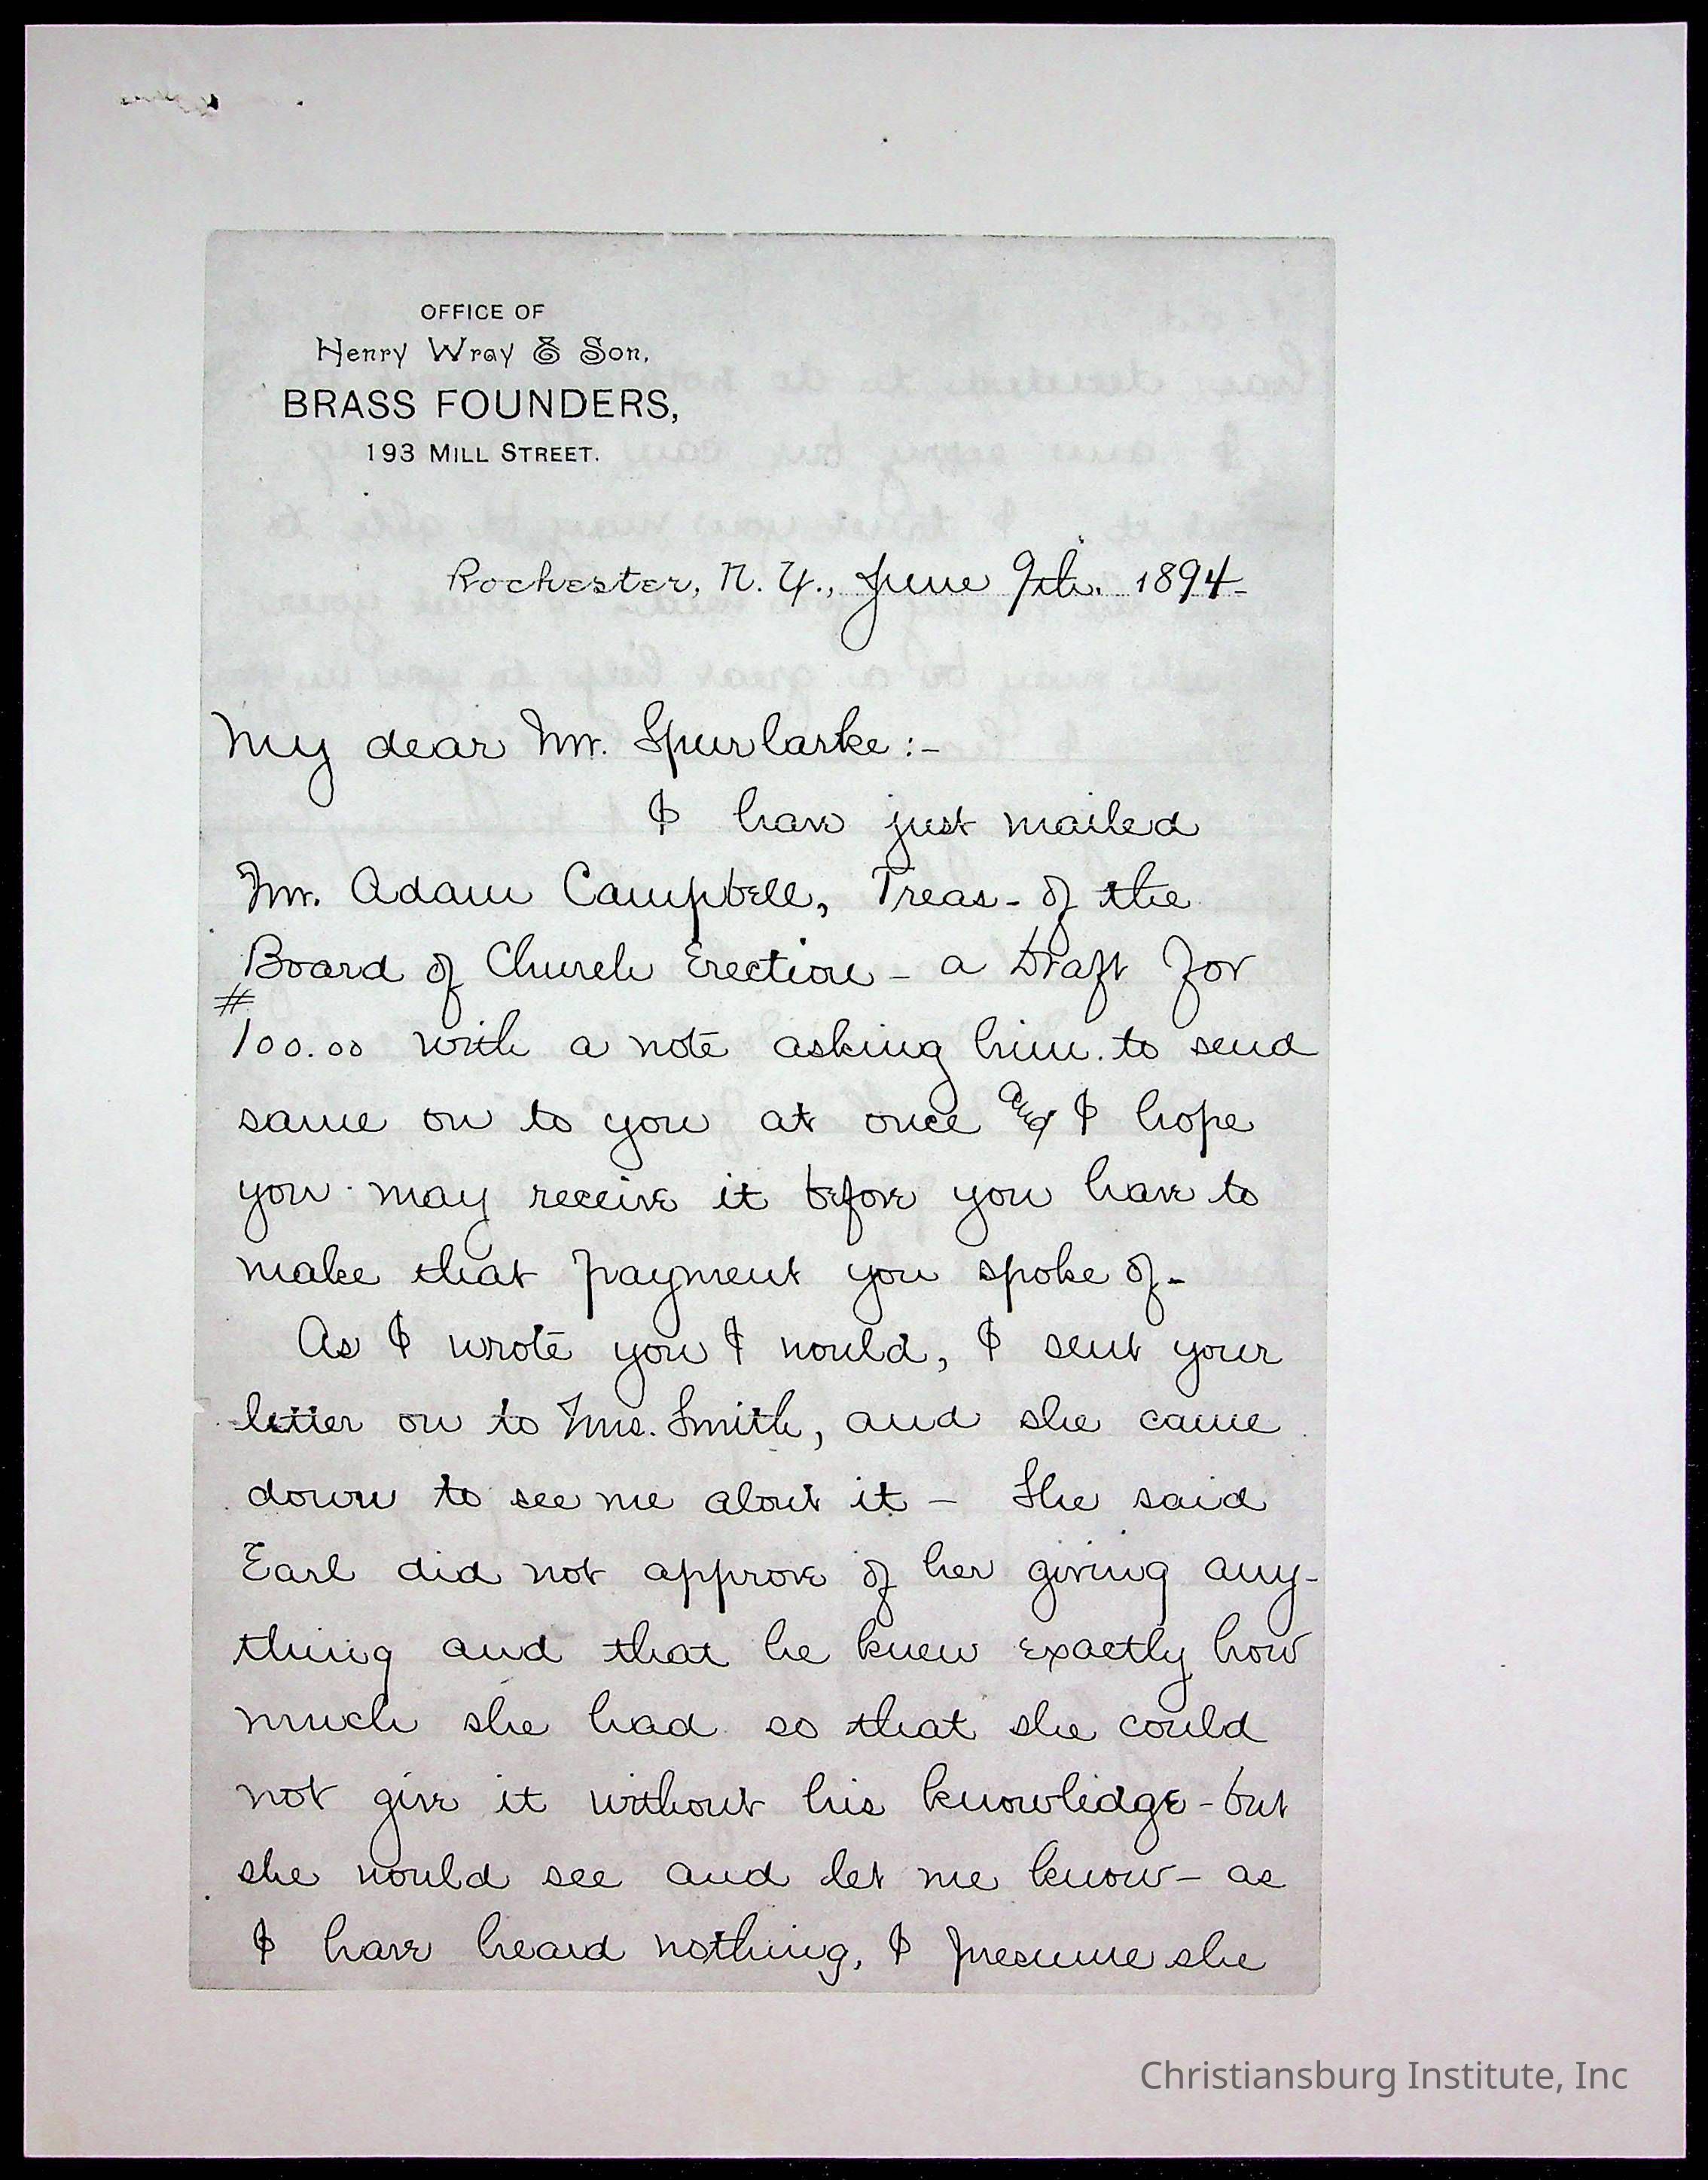 OFFICE OF
Henry Wray & Son,
BRASS FOUNDERS,
193 MILL STREET.
Rochester, N. Y., June 9th. 1894-
My dear Mr. Spurlarke:-
I have just mailed
Mr. Adam Campbell, Treas- of the
Board of Church Erection - a Draft for
#
100.00 with a note asking him to send
same on to you at once and I hope
you may receive it before you have to
make that payment you spoke of-
As I wrote you I would, I sent your
letter on to Mrs. Smith, and she came
down to see me about it - She said
Earl did not approve of her giving any-
thing and that he knew exactly how
much she had so that she could
not give it without his knowledge - but
she would see and let me know - as
I have heard nothing, I presume she
Christiansburg Institute, Inc